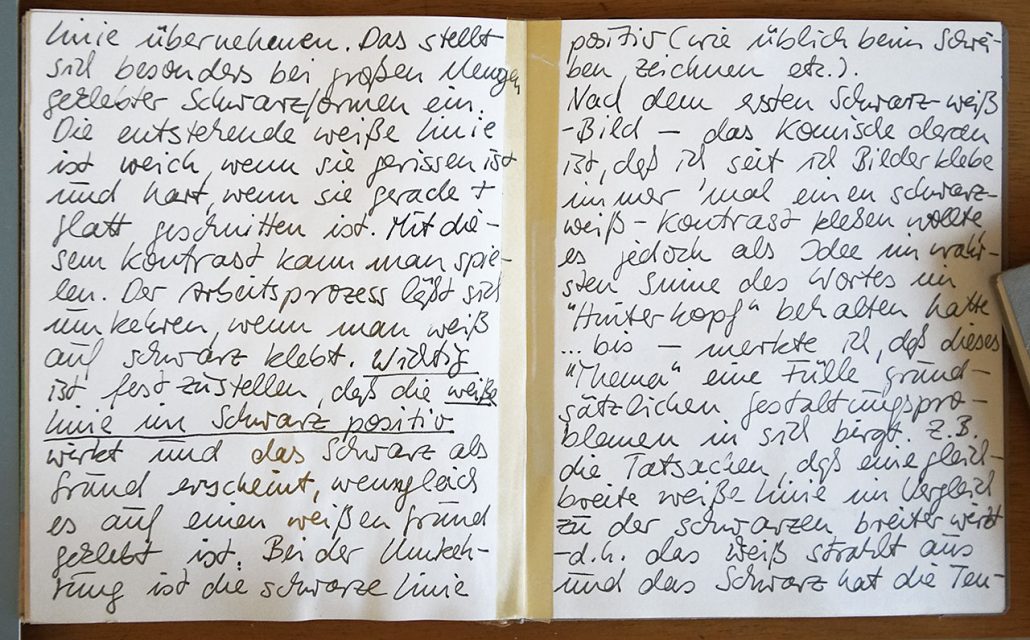 linie übernehmen. Das stellt
sich besonders bei großen Mengen
geklebter Schwarzformen ein.
Die entstehende weiße Linie
ist weich, wenn sie gerissen ist
und hart, wenn sie gerade +
glatt geschnitten ist. Mit die-
sem Kontrast kann man spie-
len. Der Arbeitsprozess läßt sich
umkehren, wenn man weiß
auf schwarz klebt. Wichtig
ist festzustellen, daß die weiße
Linie im Schwarz positiv
wirkt und das Schwarz als
Grund erscheint, wenngleich
es auf einen weißen Grund
geklebt ist. Bei der Umkeh-
rung ist die schwarze Linie
positiv (wie üblich beim Schrei-
ben, zeichnen etc.).
Nach dem ersten Schwarz-weiß
-Bild – das Komische daran
ist, daß ich seit ich Bilder klebe
immer 'mal einen schwarz-
weiß-Kontrast kleben wollte
es jedoch als Idee im wahr-
sten Sinne des Wortes im
"Hinterkopf" behalten hatte
... bis – merkte ich, daß dieses
"Thema" eine Fülle grund-
sätzlichen Gestaltungspro-
blemen in sich birgt. Z.B.
die Tatsachen, daß eine gleich-
breite weiße Linie im Vergleich
zu der schwarzen breiter wirkt
-d.h. das Weiß strahlt aus
und das Schwarz hat die Ten-